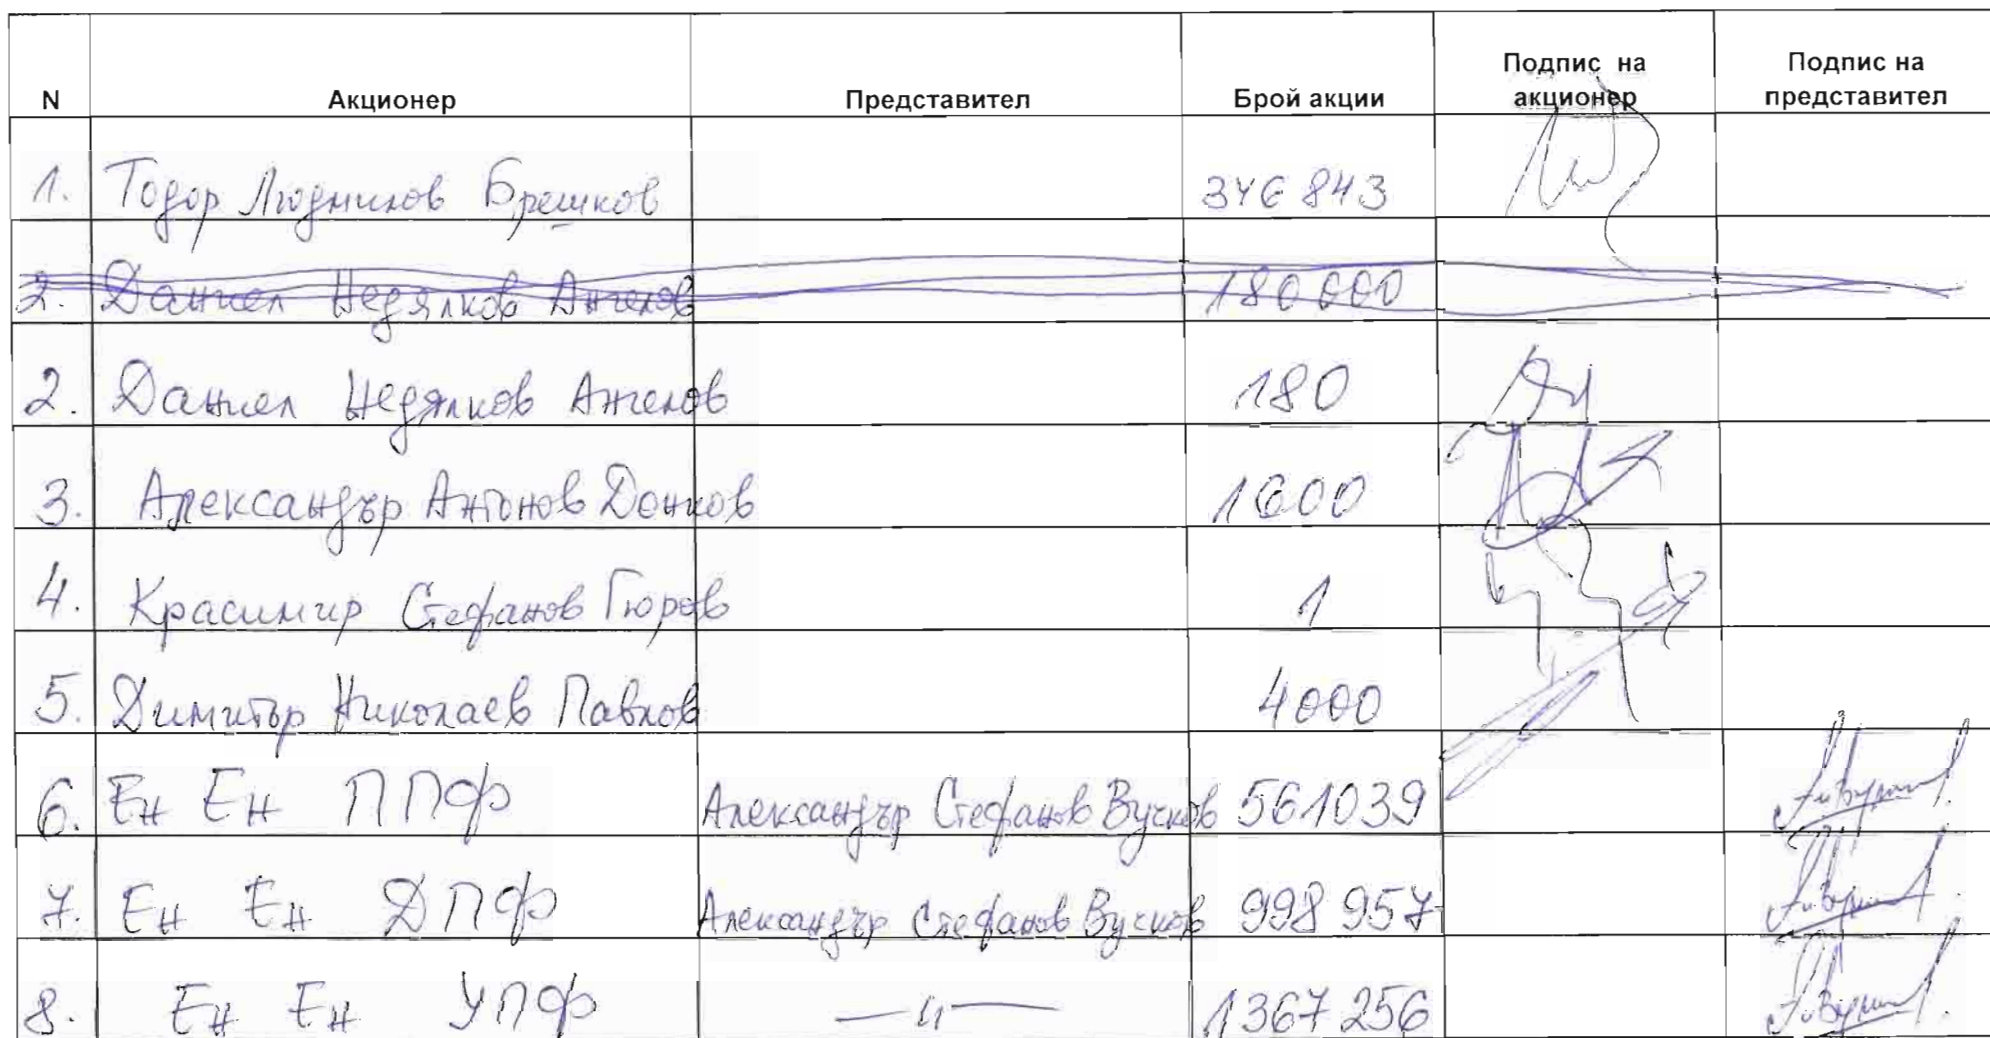 N Акционер Представител Брой акции Подпис на акционер Подпис на представител
1. Тодор Людмилов Брешков 346 843
2. Даниел Недялков Ангелов 180 000
2. Даниел Недялков Ангелов 180
3. Александър Антонов Донков 1000
4. Красимир Стефанов Гюров 1
5. Димитър Николаев Павлов 4000
6. Ен Ен ППФ Александър Стефанов Вучков 561039
7. Ен Ен ДПФ Александър Стефанов Вучков 998 957
8. Ен Ен УПФ —"— 1367 256